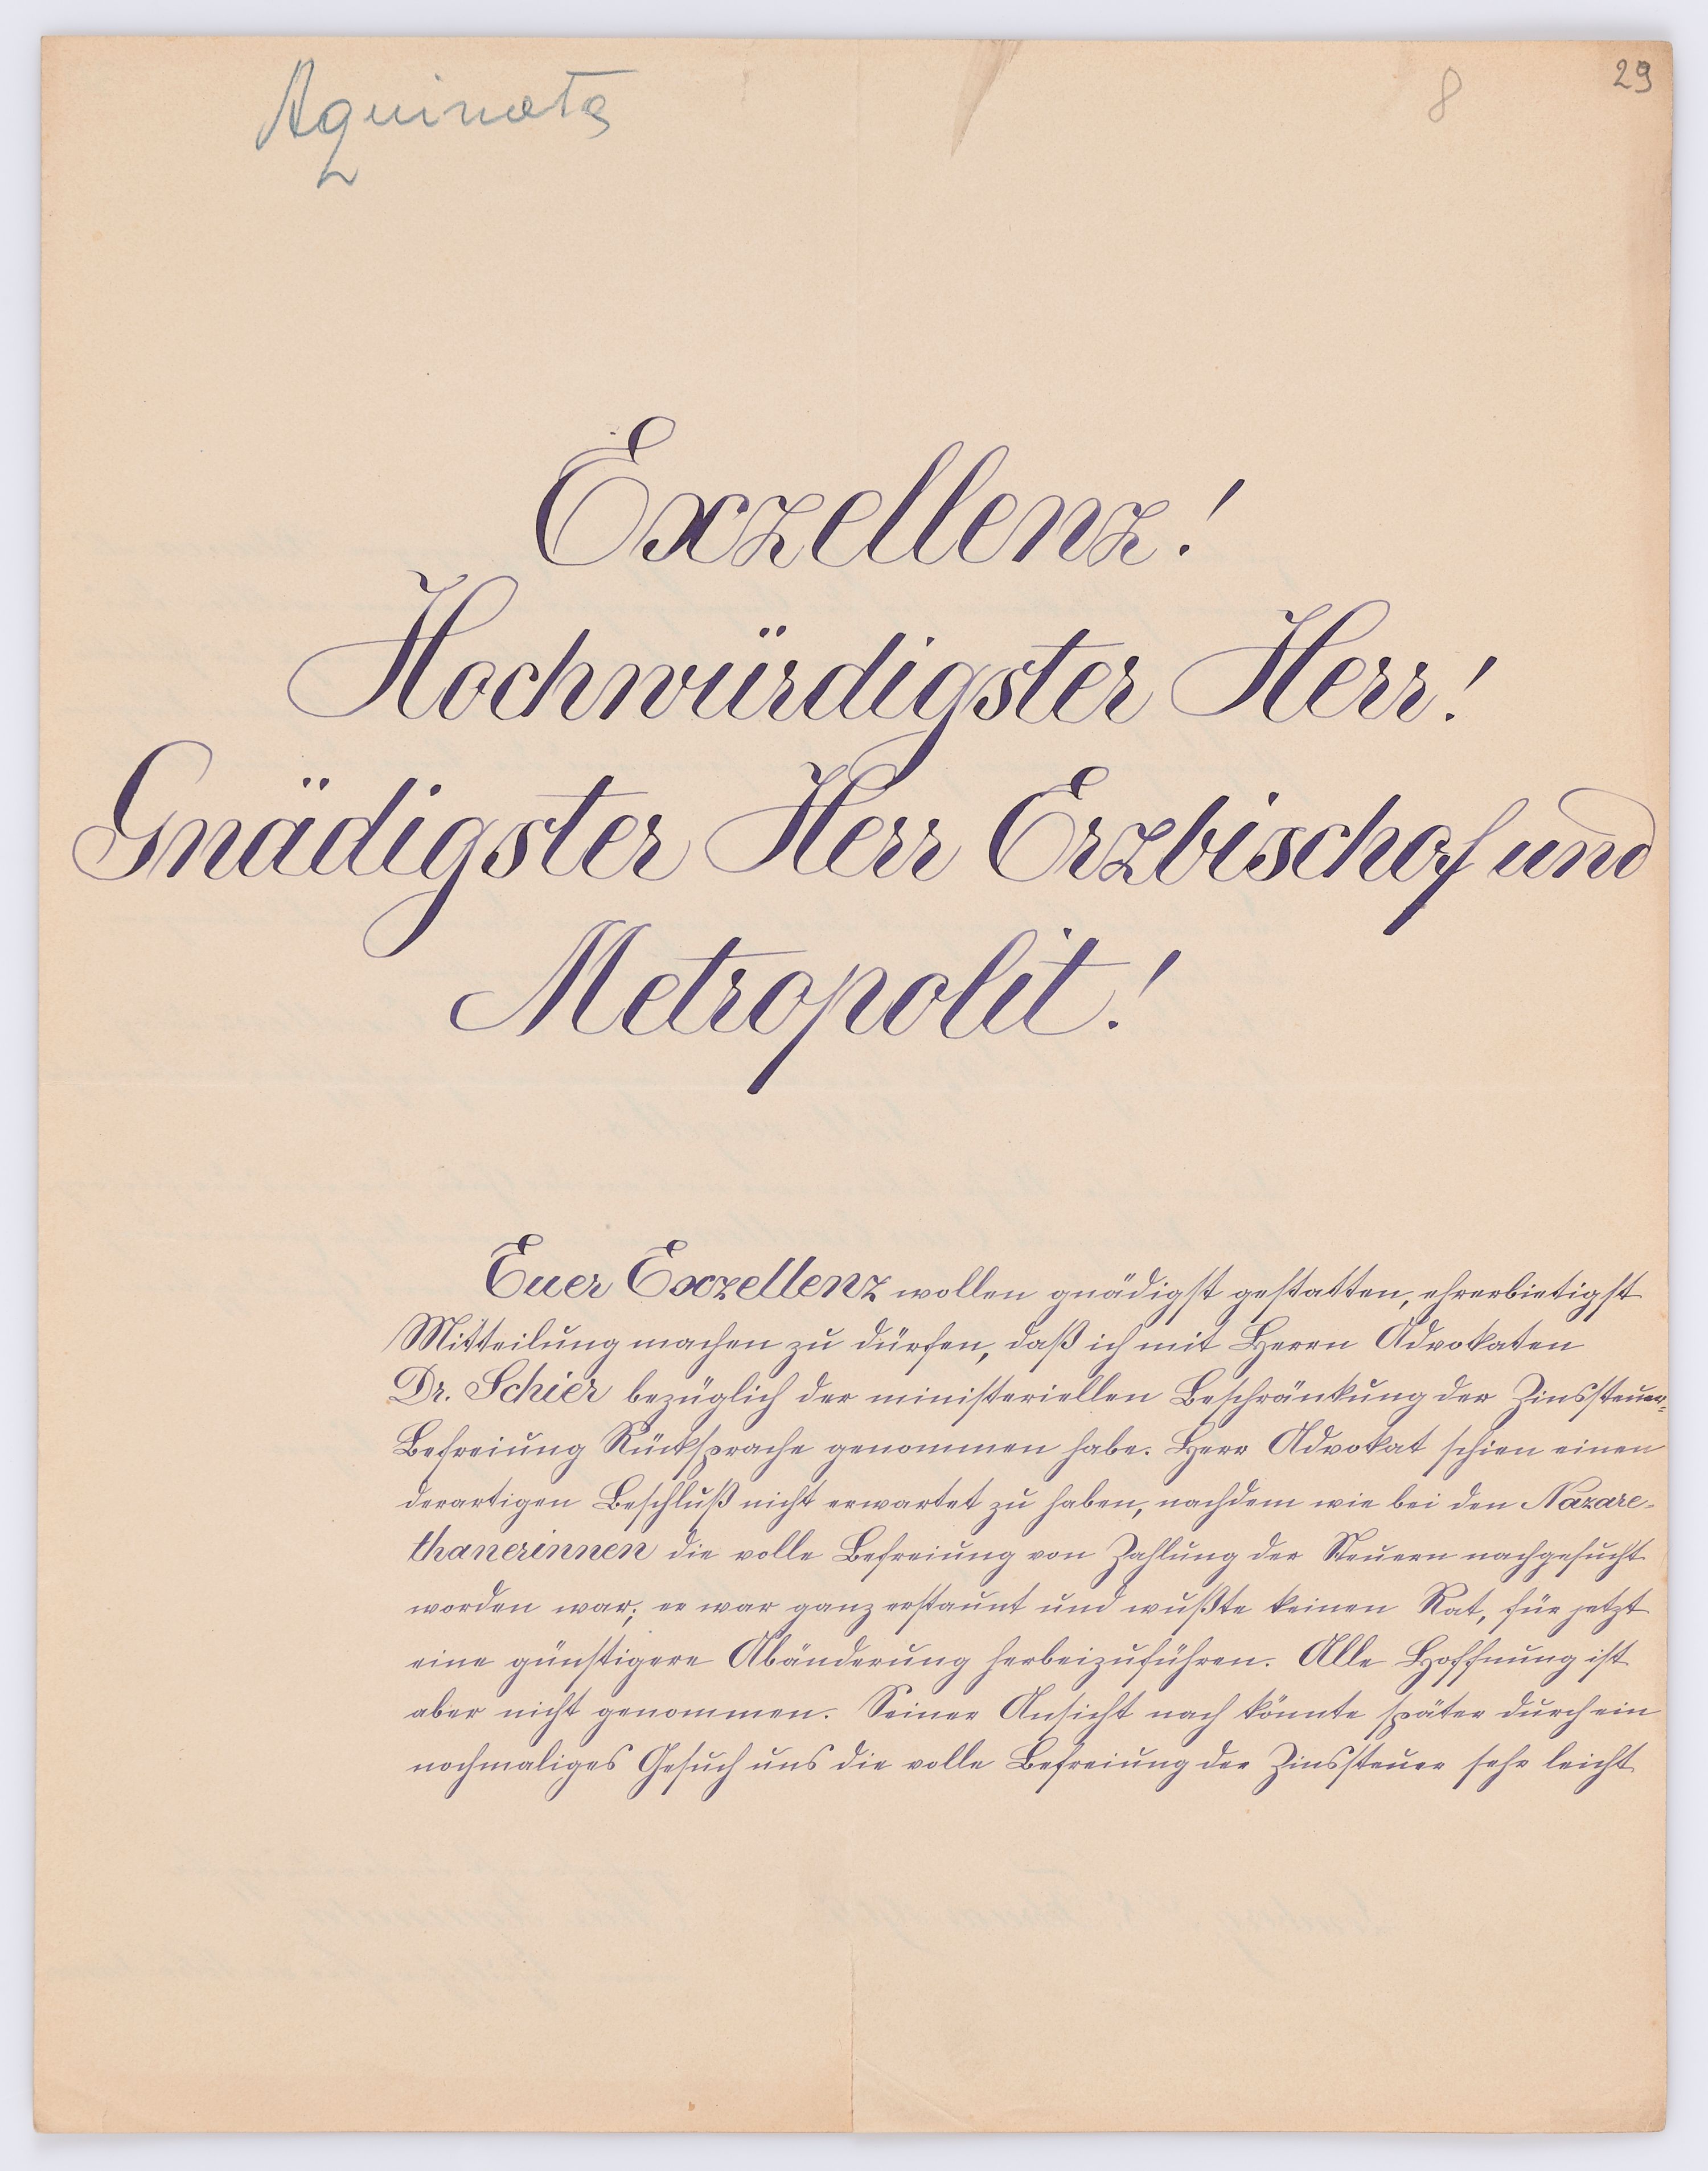 Aquinata
8
29
Exzellenz!
Hochwürdigster Herr!
Gnädigster Herr Erzbischof und
Metropolit!
Euer Exzellenz wollen gnädigst gestatten, ehrerbietigst
Mitteilung machen zu dürfen, daß ich mit Herrn Advokaten
Dr. Schier bezüglich der ministeriellen Beschränkung der Zinssteuer-
Befreiung Rücksprache genommen habe. Herr Advokat schien einen
derartigen Beschluß nicht erwartet zu haben, nachdem wie bei den Nazare-
thanerinnen die volle Befreiung von Zahlung der Steuern nachgesucht
worden war; er war ganz erstaunt und wußte keinen Rat, für jetzt
eine günstigere Abänderung herbeizuführen. Alle Hoffnung ist
aber nicht genommen. Seiner Ansicht nach könnte später durch ein
nochmaliges Gesuch uns die volle Befreiung der Zinssteuer sehr leicht